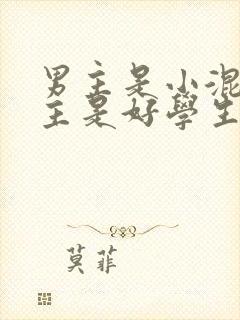 男主是小混
主是好學生
莫菲